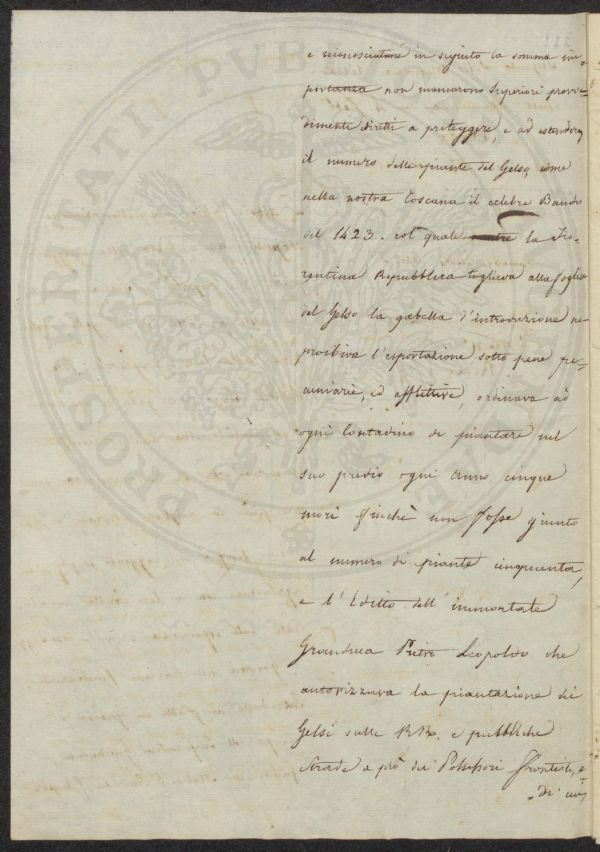 e riconosciutane in seguito la somma im=
portanza non mancarono Superiori provve=
dimenti diretti a proteggere, e ad estendere
il numero delle piante del Gelso, come
nella nostra Toscana il celebre Bando
del 1423. col quale mentre la Fio=
rentina Repubblica toglieva alla foglia
del Gelso la gabella d'introduzione ne
proibiva l'esportazione sotto pene pe=
cuniarie, ed afflittive, ordinava ad
ogni Contadino di piantare nel
suo predio ogni anno cinque
mori finchè non fosse giunto
al numero di piante cinquanta,
e l'Editto dell'immortale
Granduca Pietro Leopoldo che
autorizzava la piantazione dei
Gelsi sulle RR. e pubbliche
strade a prò dei Possessori frontisti, e
di cui
PROSPERITATI PUBLICAE AUGENDAE